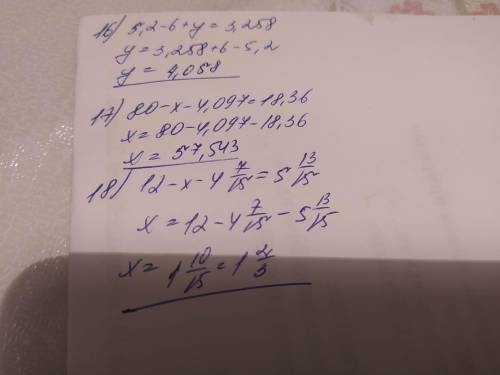 16) 5,2-6+y=3,258
y=3,258+6-5,2
y=4,058
17) 80-x-4,097=18,36
x=80-4,097-18,36
x=57,543
18) 12-x-4 7/15=5 13/15
x=12-4 7/15-5 13/15
x=1 10/15=1 2/3